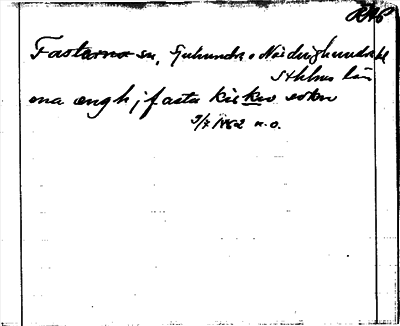 RAP
Fastarna sn, Sjuhundra o Närdinghundra hd
Sthlms län
ena ængh j fasta kirkio sokn
9/7 1462 n.o.